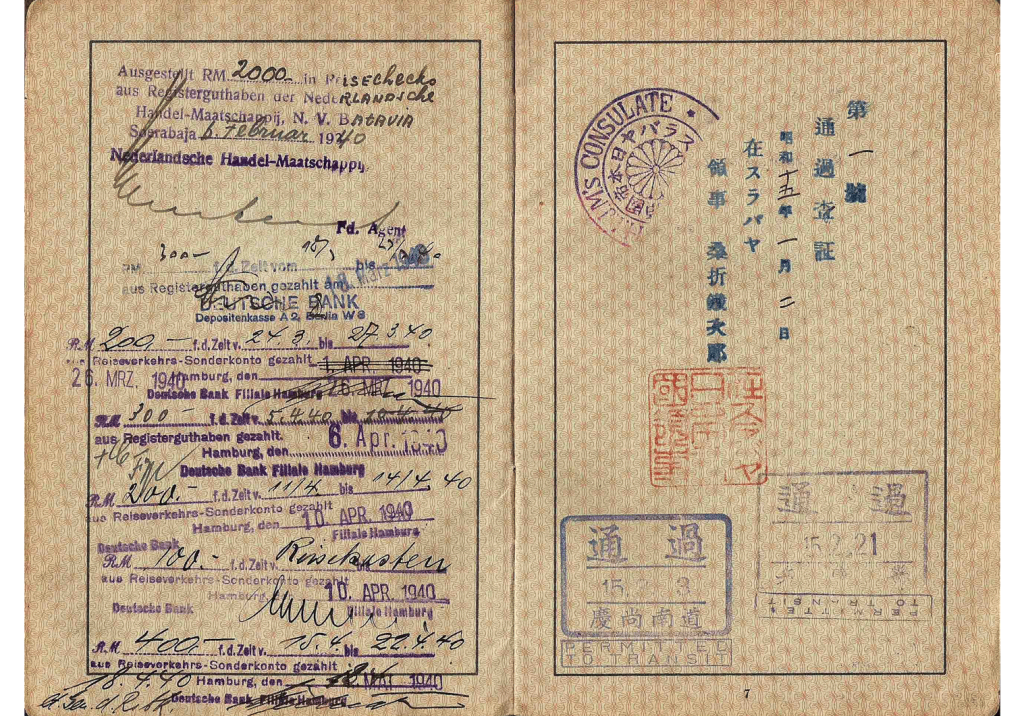 Ausgestellt RM 2000- in Reisechecks
aus Registerguthaben der Nederlandsche
Handel-Maatschappij, N. V. Batavia
Soerabaja 6. Februar 1940
Nederlandsche Handel-Maatschappij,
Fd. Agent
RM 300- f. d. Zeit vom bis
aus Registerguthaben gezahlt am März 1940
DEUTSCHE BANK
Depositenkasse A 2, Berlin W 8
R.M 200.- f.d. Zeit v. 24.3. bis 27.3.40
aus Reiseverkehrs-Sonderkonto gezahlt 1. APR. 1940
26. MRZ. 1940 Hamburg, den 26. MRZ. 1940
Deutsche Bank Filiale Hamburg
R.M 300- f.d. Zeit v. 5.4.40 bis
aus Registerguthaben gezahlt.
Hamburg, den 6. Apr. 1940
Deutsche Bank Filiale Hamburg
R.M 200.- f.d. Zeit v. 11/4. bis 14/4. 40
aus Reiseverkehrs-Sonderkonto gezahlt
Hamburg, den 10. APR. 1940
Deutsche Bank Filiale Hamburg
R.M 100.- f.d. Zeit v. Reisekosten
aus Reiseverkehrs-Sonderkonto gezahlt
Hamburg, den 10. APR. 1940
Deutsche Bank Filiale Hamburg
R.M 400- f.d. Zeit v. 15.4. bis 22.4.40
aus Reiseverkehrs-Sonderkonto gezahlt
18.4.40 Hamburg, den MAI 1940
Deutsche Bank Filiale Hamburg
第一號
通過査証
昭和十五年一月二日
在スラバヤ
領事 桑折鐵次郎
CONSULATE
スラバヤ日本帝國
通過
15. 2. 3
慶尚南道
PERMITTED
TO TRANSIT
通過
15.2.21
PERMITTED
TO TRANSIT
7